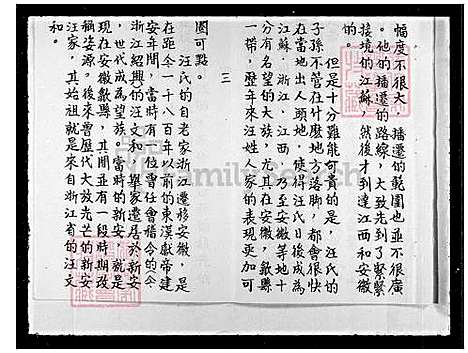 幅度不很大，播遷的範圍也並不很廣
。他的播遷的路線，大致先到了緊緊
接境的江蘇，然後才到達江西和安徽
的。
但是十分難能可貴的是，汪氏的
子孫不管在什麼地方落腳，都會很快
在當地出人頭地，使得汪氏日後成為
江蘇、浙江、江西，乃至安徽等地十
分有名望的大族，尤其在安徽，歙縣
一帶，歷年來汪姓人家的表現更加可
圈可點。
三
汪氏的自老家浙江遷移安徽，是
在距今一千八百年以前的東漢獻帝建
安年間，當時有一位曾任會稽令的（今
浙江紹興）的汪文和，舉家遷居於新安
，世代成為望族。當時的新安，就是
現在安徽歙縣，其間並有一段時期改
稱婺源。後來曾歷代大放光芒的新安
汪家，其始祖就是來自浙江省的汪文
和。
FamilySearch